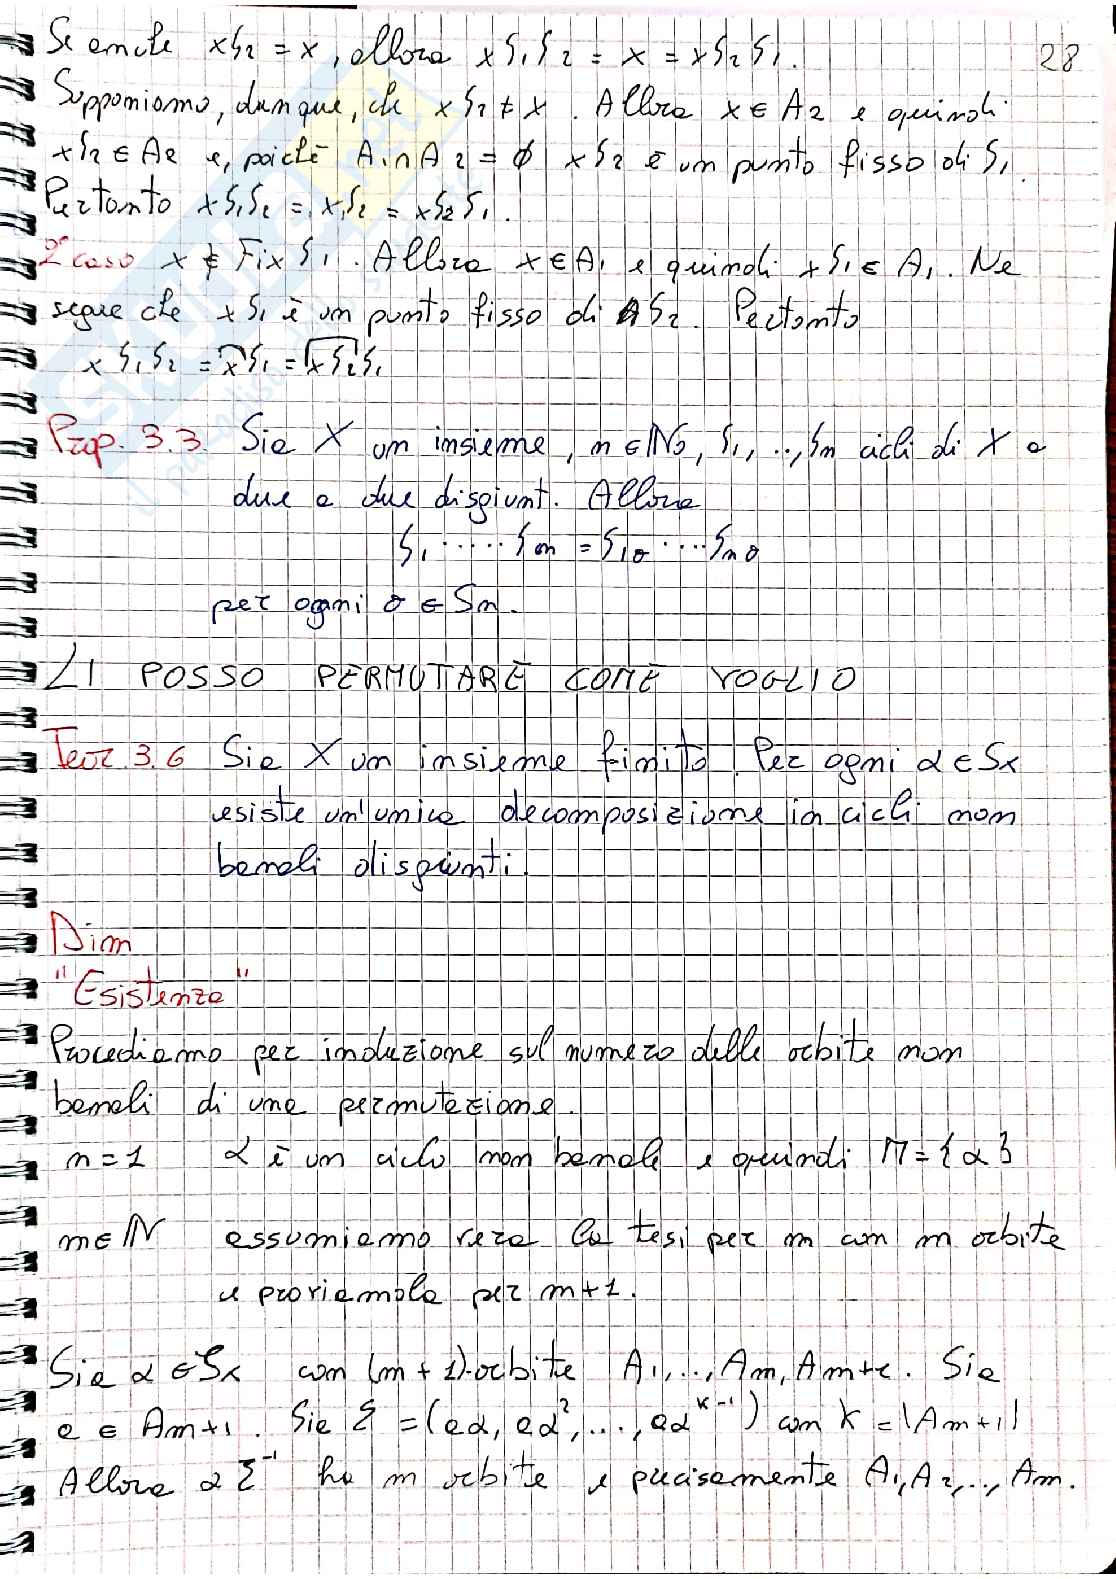 Se anche xς₂ = x, allora xς₁ς₂ = x = xς₂ς₁.
28
Supponiamo, dunque, che xς₂ ≠ x. Allora x ∈ A₂ e quindi
xς₂ ∈ A₂ e, poichè A₁ ∩ A₂ = ∅ xς₂ è un punto fisso di ς₁.
Pertanto xς₁ς₂ = xς₂ = xς₂ς₁.
2° caso x ∉ Fix ς₁. Allora x ∈ A₁ e quindi xς₁ ∈ A₁. Ne
segue che xς₁ è un punto fisso di ς₂. Pertanto
xς₁ς₂ = xς₁ = xς₂ς₁
Prop. 3.3. Sia X un insieme, n ∈ N₀, ς₁, .., ςn cicli di X a
due a due disgiunt. Allora
ς₁ ..... ςn = ς1σ ... ςnσ
per ogni σ ∈ Sn.
LI POSSO PERMUTARE COME VOGLIO
Teor. 3.6 Sia X un insieme finito. Per ogni α ∈ Sx
esiste un'unica decomposizione in cicli non
banali disgiunti.
Dim
"Esistenza"
Procediamo per induzione sul numero delle orbite non
banali di una permutazione.
n = 1 α è un ciclo non banale e quindi Π = {α}
m ∈ N assumiamo vera la tesi per m con m orbite
e proviamola per m+1.
Sia α ∈ Sx con (m+1)-orbite A₁,..., Am, Am+1. Sia
a ∈ Am+1. Sia Σ = (aα, aα², ..., aα^k-1) con k = |Am+1|
Allora αΣ⁻¹ ha m orbite e precisamente A₁, A₂, .., Am.